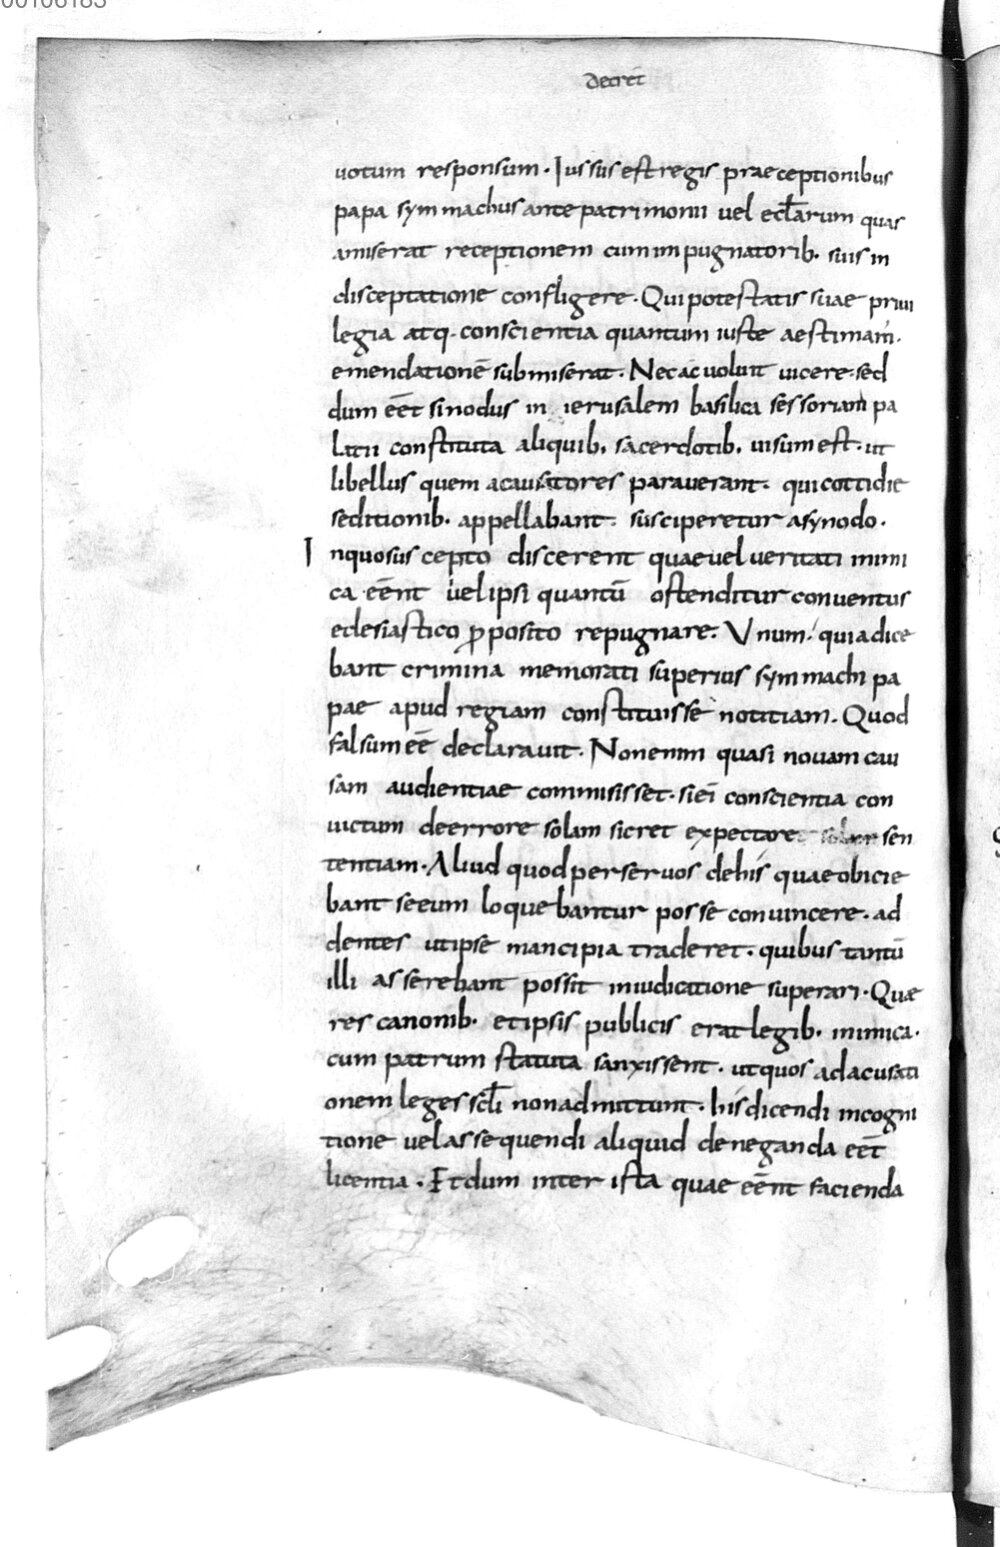 00106183
decret̄
uotum responsum · Iussus est regis praeceptionibus
papa symmachus ante patrimonii uel ecl̄arum quas
amiserat receptionem cum impugnatorib· suis in
disceptatione confligere · Qui potestatis suae priui
legia atq· conscientia quantum iuste aestimam̄.
emendationē submiserat · Nec ac uoluit uicere · sed
dum eēt sinodus in ierusalem basilica sessoriam pa
latii constituta aliquib, sacerdotib, uisum est · ut
libellus quem acausatores parauerant · qui cottidie
seditionib· appellabant · susciperetur asynodo ·
In quo suscepto discerent quae uel ueritati inimi
ca eēnt uel ipsi quantū ostenditur conuentus
eclesiastico p̱posito repugnare · Vnum · quia dice
bant crimina memorati superius symmachi pa
pae apud regiam constituisse notitiam · Quod
falsum eē declarauit · Non enim quasi nouam cau
sam audientiae commisisset · si eī conscientia con
uictum de errore solam sicret expectare sen
tentiam · Aliud quod per seruos de his quae obicie
bant se eum loquebantur posse conuincere · ad
dentes ut ipse mancipia traderet · quibus tantū
illi asserebant possit in iudicatione superari · Quae
res canonib· et ipsis publicis erat legib· inimica ·
cum patrum statuta sanxissent · ut quos ad acusati
onem leges scl̄i non admittunt · his dicendi incogni
tione uel assequendi aliquid deneganda eēt
licentia · Et dum inter ista quae eēnt facienda